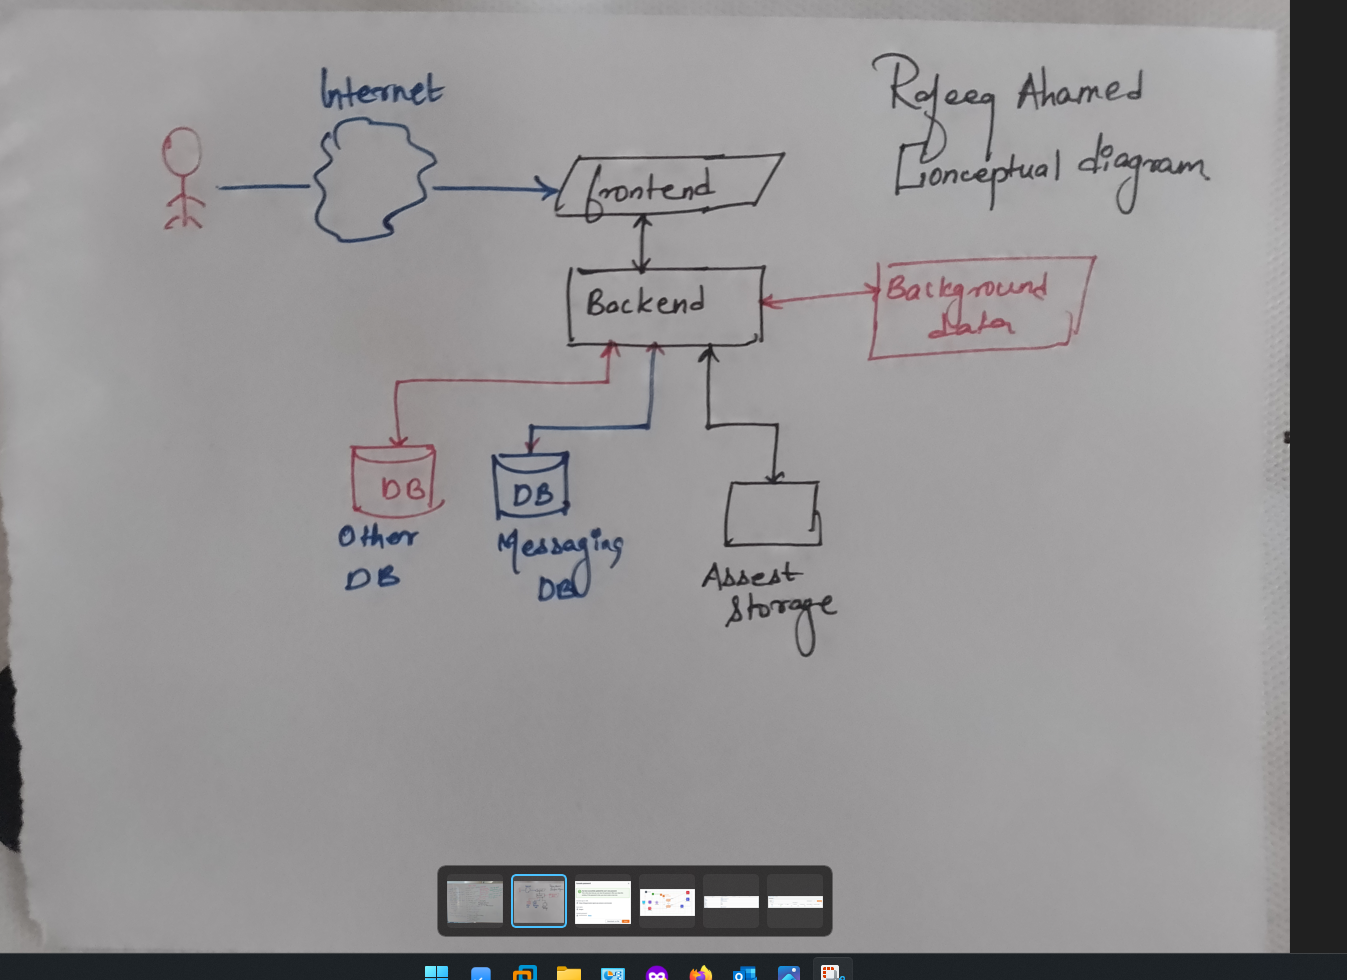 Internet
Rafeeq Ahamed
Conceptual diagram
frontend
Backend
Background
data
DB
DB
Other
DB
Messaging
DB
Assest
Storage